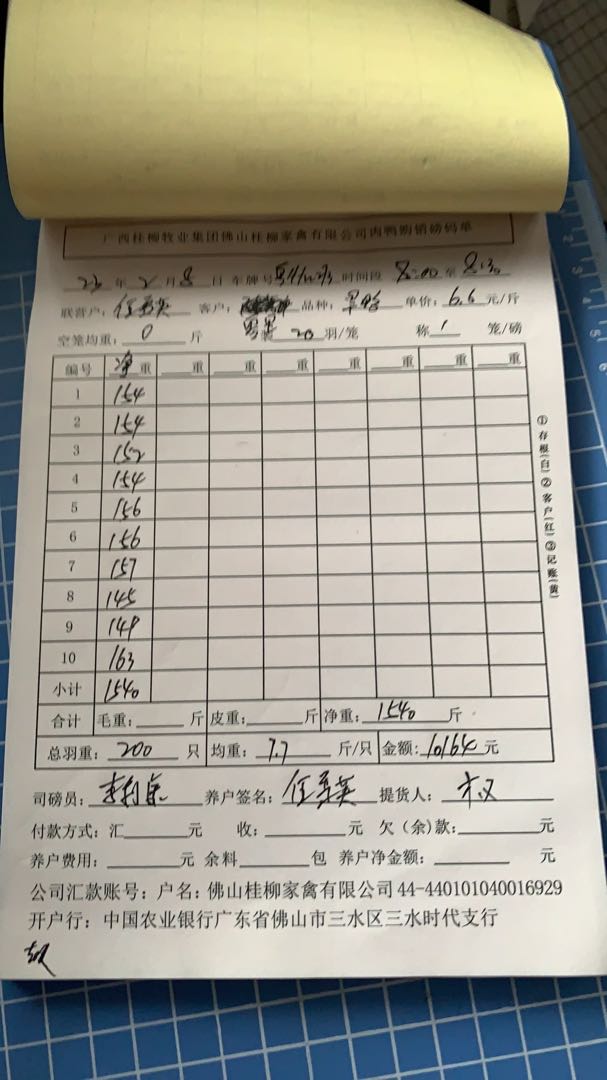 广西桂柳牧业集团佛山桂柳家禽有限公司肉鸭购销磅码单
23 年 2 月 8 日 车牌号 时间段 8:00 至 8:30
联营户: 任 英 客户: 品种: 单价: 6.6 元/斤
空笼均重: 0 斤 20 羽/笼 称 1 笼/磅
编号 净重 重 重 重 重 重 重 重
1 154
2 154
3 152
4 154
5 156
6 156
7 157
8 145
9 149
10 163
小计 1540
合计 毛重: 斤 皮重: 斤 净重: 1540 斤
总羽重: 200 只 均重: 7.7 斤/只 金额: 10164 元
司磅员: 养户签名: 任 英 提货人:
付款方式: 汇 元 收: 元 欠(余)款: 元
养户费用: 元 余料 包 养户净金额: 元
公司汇款账号: 户名: 佛山桂柳家禽有限公司 44-440101040016929
开户行: 中国农业银行广东省佛山市三水区三水时代支行
①存根(白)②客户(红)③记账(黄)